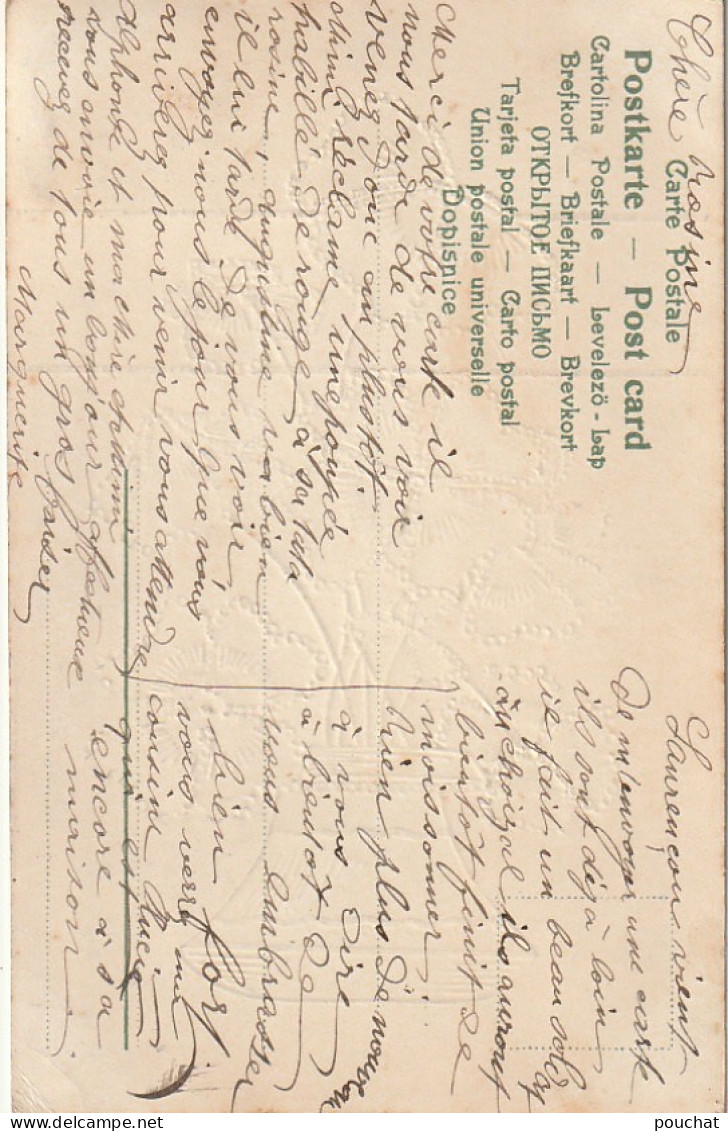 Chère Rosine
Carte Postale
Postkarte — Post card
Cartolina Postale — Levelező-Lap
Brefkort — Briefkaart — Brevkort
ОТКРЫТОЕ ПИСЬМО
Tarjeta postal — Carto postal
Union postale universelle
Dopisnice
Merci de votre carte il
nous tarde de vous voir
venez donc au plustôt.
Mimi réclame une poupée
habillée de rouge à sa tata
rosine, augustine va bien
il lui tarde de vous voir
envoyez nous le jour que vous
arriverez pour venir vous attendre
alphonse et ma mère et mimi
vous envoie un bonjour afectueux
recevez de tous un gros baiser
Marguerite
Laurençon vient
de m'envoyer une carte
ils sont déjà loin
il fait un beau sold
au choizal ils auront
bientôt finit de
moissonner,
Rien plus de nouveau
à vous dire
à bientôt de
vous embrasser
bien fort
vous verr une
cousine
qui est
encore à sa
maison
pouchat